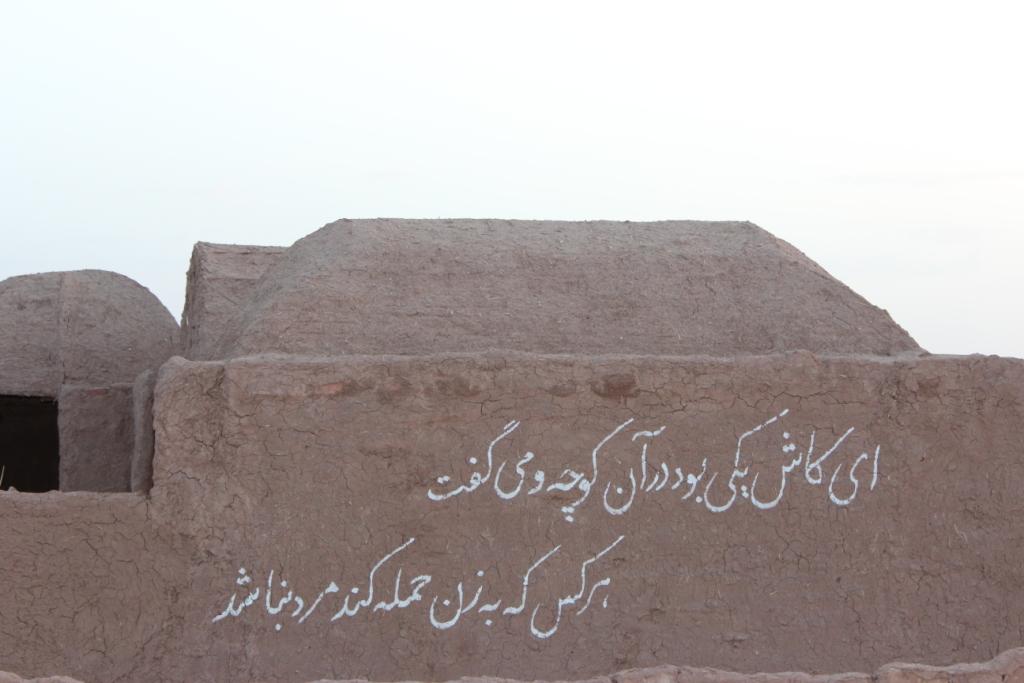 ای کاش یکی بود در آن کوچه و می گفت
هر کس که به زن حمله کند مرد نباشد